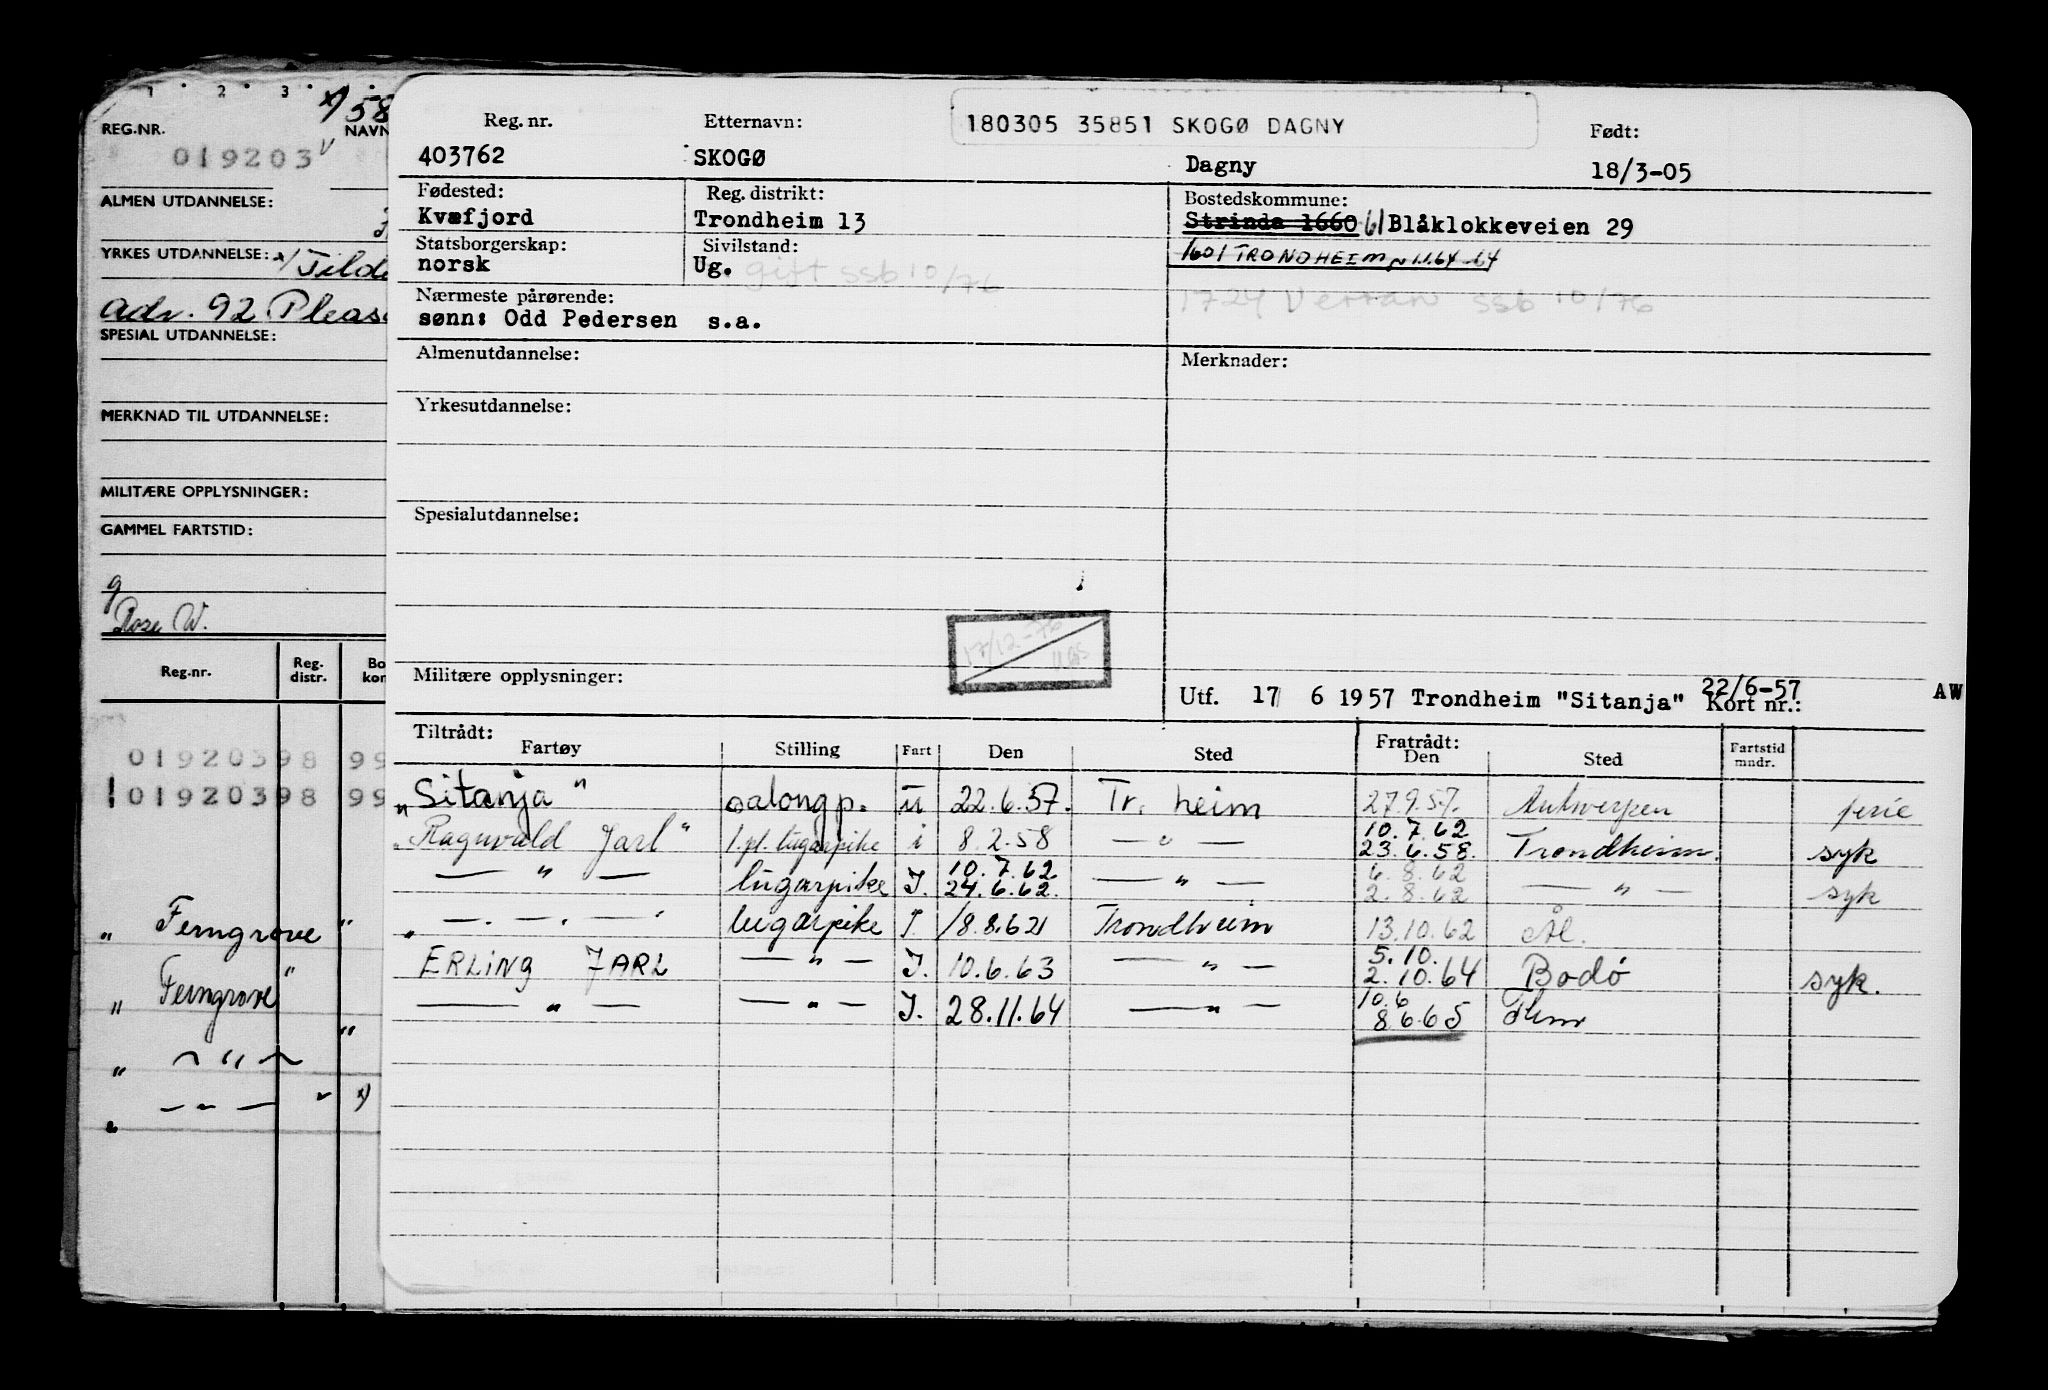 1 2 3
x) 58
REG.NR. NAVN
019203 v
ALMEN UTDANNELSE:
YRKES UTDANNELSE: x) Tilde
adr. 92 Pleas
SPESIAL UTDANNELSE:
MERKNAD TIL UTDANNELSE:
MILITÆRE OPPLYSNINGER:
GAMMEL FARTSTID:
g
Rose W.
Reg.nr. Reg. distr. Bo kon
01920398 99
01920398 99
" Ferngrove "
" Ferngrove "
" — " — "
— " — v x)
180305 35851 SKOGØ DAGNY
Reg. nr. Etternavn: Født:
403762 SKOGØ Dagny 18/3-05
Fødested: Reg. distrikt: Bostedskommune:
Kvæfjord Trondheim 13 Strinda 1660 61 Blåklokkeveien 29
Statsborgerskap: Sivilstand: 1601 TRONDHEIM 1.1.64 -64
norsk Ug. gift ssb 10/76
Nærmeste pårørende: 1724 Verran ssb 10/76
sønn: Odd Pedersen s.a.
Almenutdannelse: Merknader:
Yrkesutdannelse:
Spesialutdannelse:
17/12-76
Militære opplysninger:
Utf. 17 6 1957 Trondheim "Sitanja" 22/6-57 Kort nr.: AW
Tiltrådt: Fratrådt:
Fartøy Stilling Fart Den Sted Den Sted Fartstid mndr.
"Sitanja" salongp. U 22.6.57. Tr. heim 27.9.57. Antwerpen ferie
"Ragnvald Jarl" 1.pl. lugarpike i 8.2.58 — " — 10.7.62 23.6.58. Trondheim. syk
— " — lugarpike I. 10.7.62 24.6.62. — " — 6.8.62 2.8.62 — " — syk
" — . — . — " lugarpike I. 18.8.62 Trondheim 13.10.62 Ål.
ERLING JARL — " — I. 10.6.63 — " — 5.10. 2.10.64 Bodø syk.
— " — — " — I. 28.11.64 — " — 10.6 8.6.65 Thm